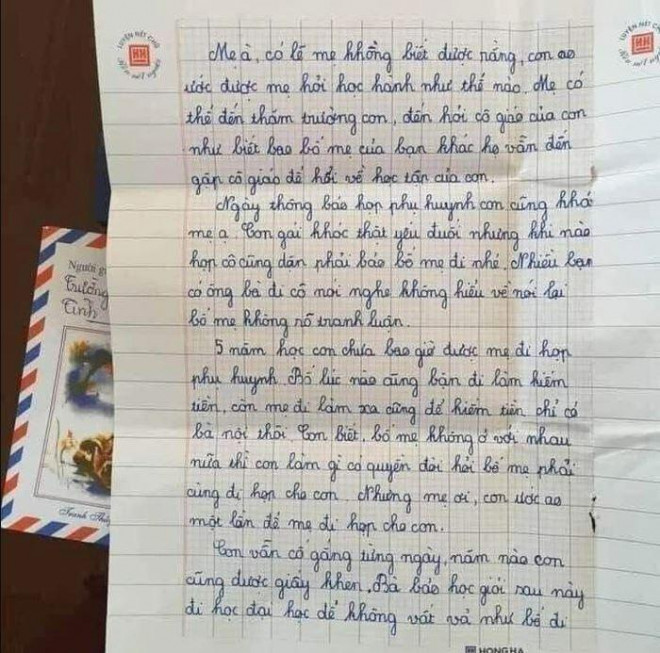 LUYỆN NÉT CHỮ
HH
LUYỆN NÉT
HH
Mẹ à, có lẽ mẹ không biết được rằng, con ao
ước được mẹ hỏi học hành như thế nào. Mẹ có
thể đến thăm trường con, đến hỏi cô giáo của con
như biết bao bố mẹ của bạn khác họ vẫn đến
gặp cô giáo để hỏi về học tập của con.
Ngày thông báo họp phụ huynh con cũng khó
mẹ ạ. Con gái khóc thật yếu đuối nhưng khi nào
họp cô cũng dặn phải bảo bố mẹ đi nhé. Nhiều bạn
có ông bà đi cô nói nghe không hiểu về nói lại
bố mẹ không rõ tranh luận.
5 năm học con chưa bao giờ được mẹ đi họp
phụ huynh. Bố lúc nào cũng bận đi làm kiếm
tiền, còn mẹ đi làm xa cũng để kiếm tiền chỉ có
bà nội thôi. Con biết, bố mẹ không ở với nhau
nữa thì con làm gì có quyền đòi hỏi bố mẹ phải
cùng đi họp cho con. Nhưng mẹ ơi, con ước ao
một lần để mẹ đi họp cho con.
Con vẫn cố gắng từng ngày, năm nào con
cũng được giấy khen. Bà bảo học giỏi sau này
đi học đại học để không vất vả như bố đi
HH HONG HA
Người g
Trường
Tỉnh
Tranh Thủy